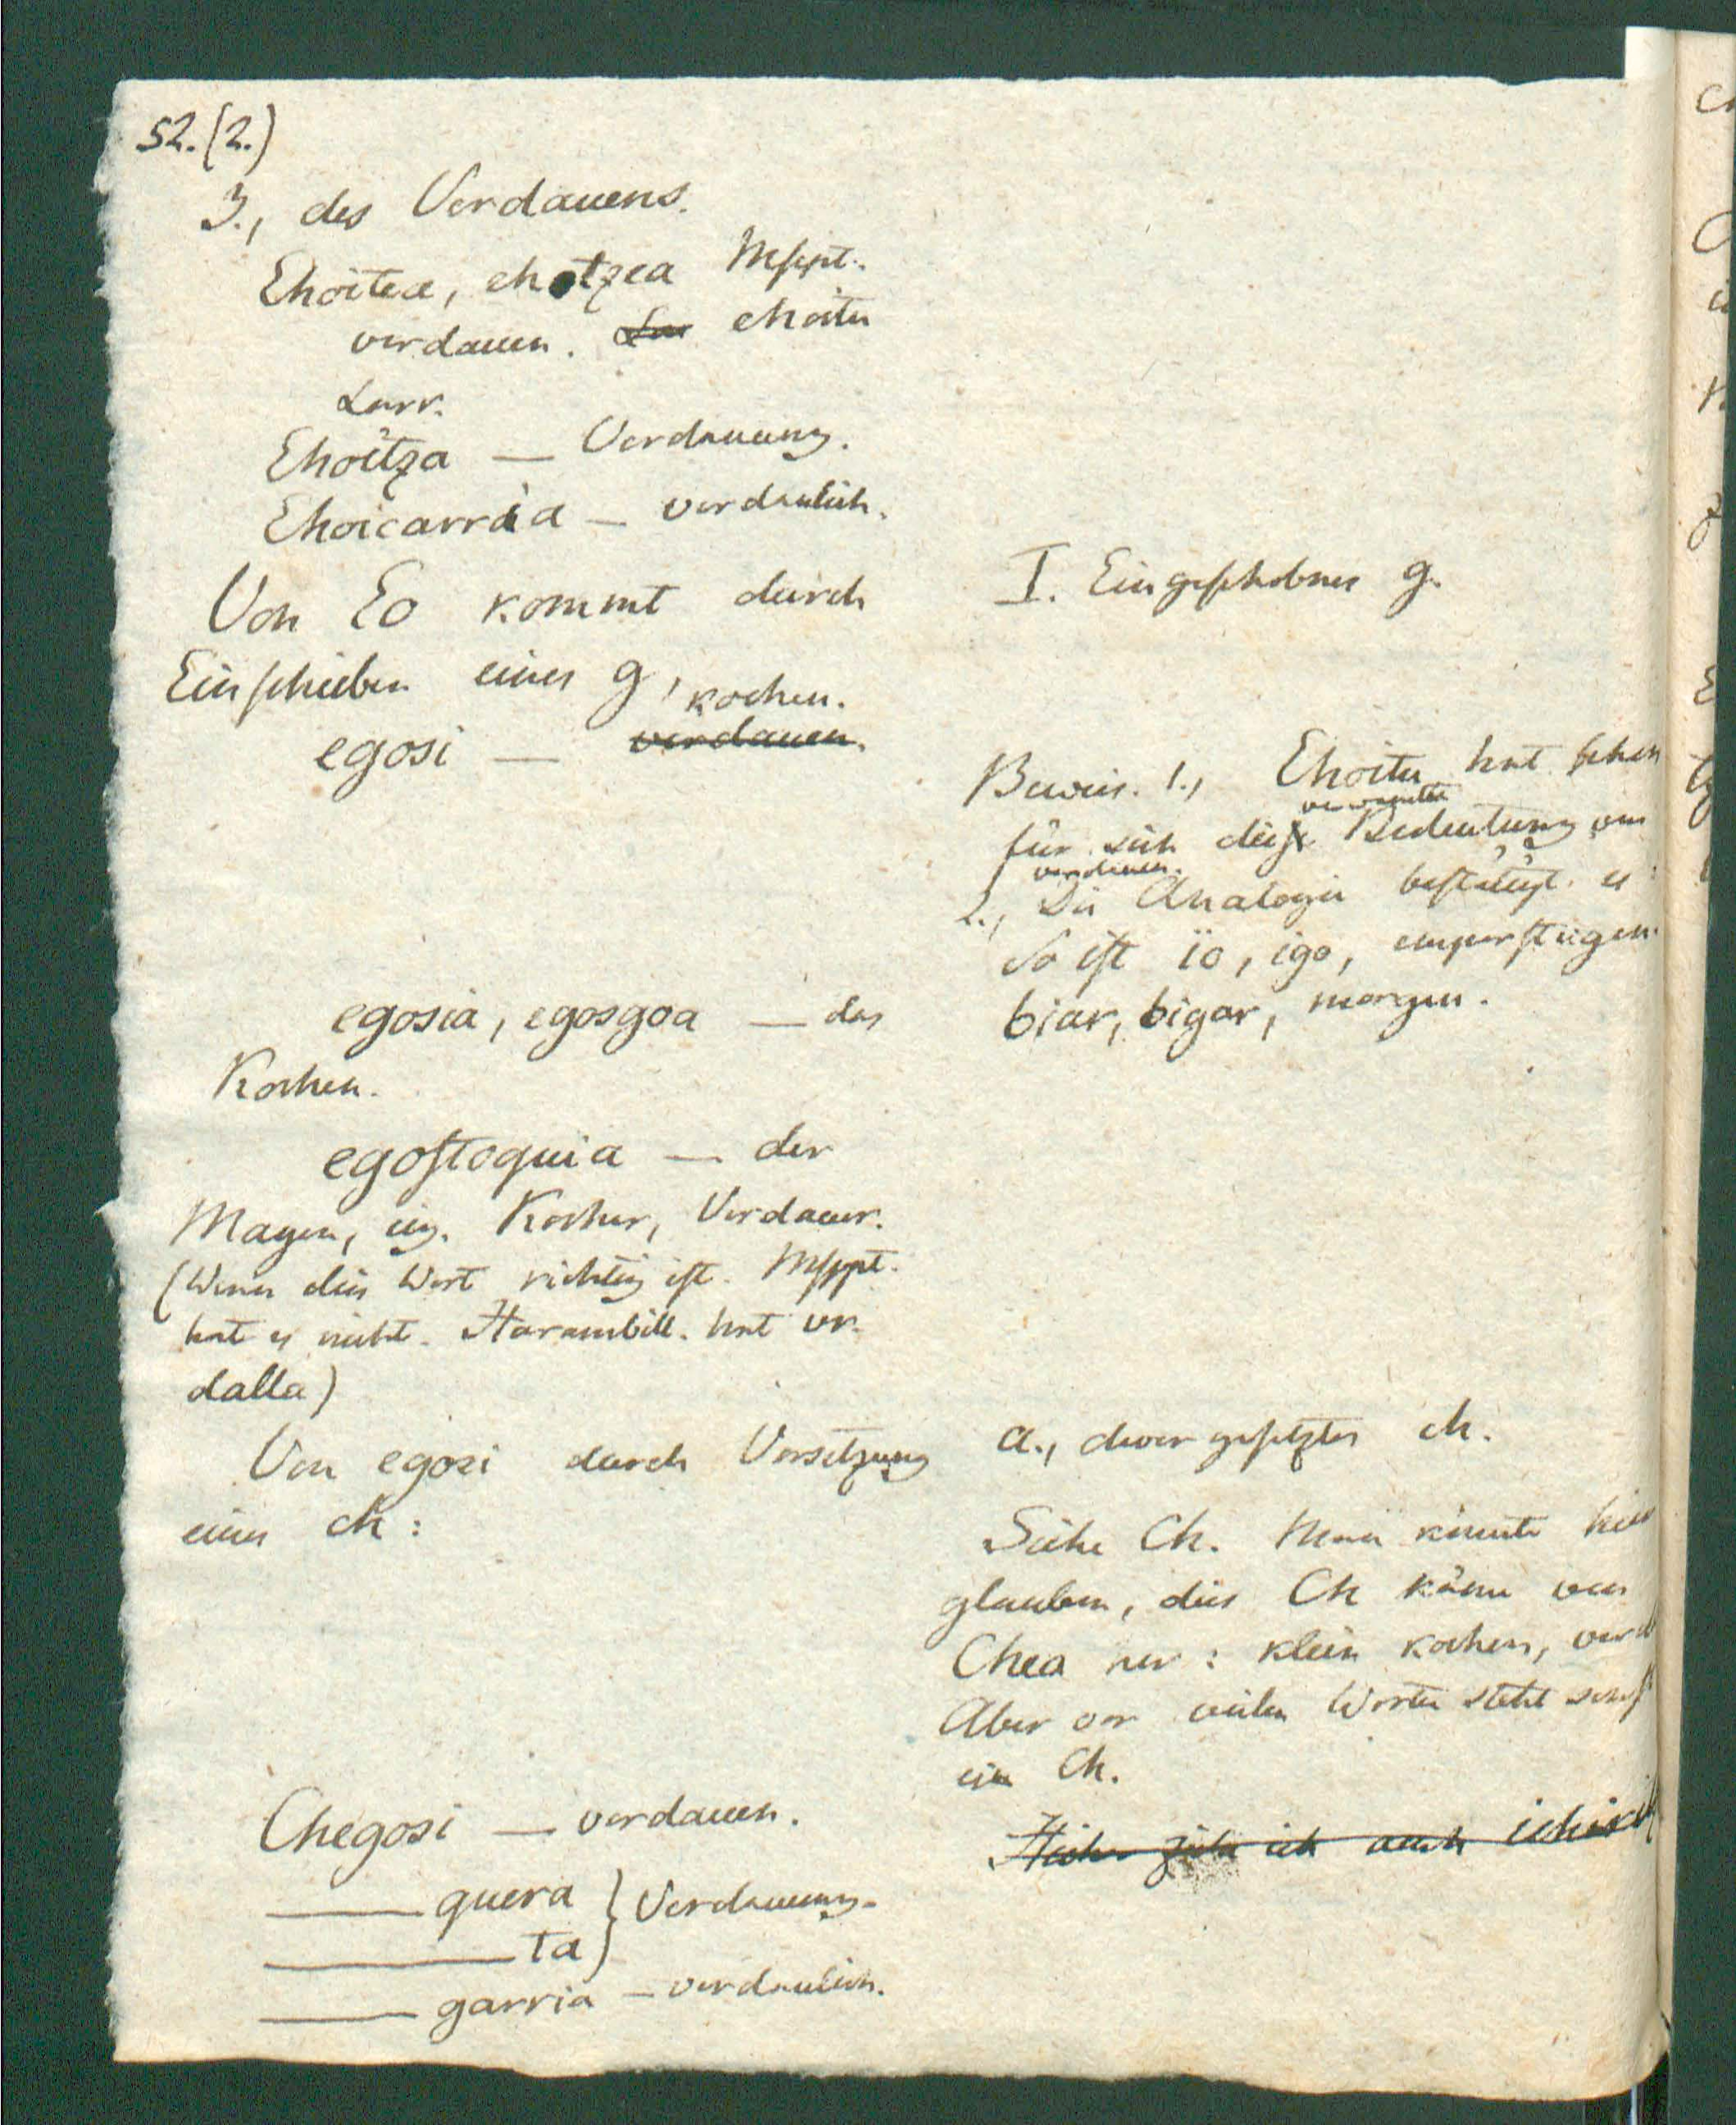 52. (2.)
3., des Verdauens.
Ehoitea, ehotzea Mscpt.
verdauen. Lar ehoitu
Larr.
Ehoitza — Verdauung.
Ehoicarria — verdaulich.
Von Eo kommt durch
Einschieben eines g,
kochen.
egosi — verdauen.
egosia, egosgoa — das
Kochen.
egostoquia — der
Magen, eig. Kocher, Verdauer.
(Wenn dies Wort richtig ist. Mscpt.
hat es nicht. Harambill. hat ur-
dalla)
Von egosi durch Vorsetzung
eines ch:
Chegosi — verdauen.
— quera } Verdauung.
— ta }
— garria — verdaulich.
I. Eingeschobnes g.
Beweis. 1., Ehoitu hat schon
verwandte
für sich die Bedeutung von
verdauen.
2., Die Analogie bestätigt es:
So ist io, igo, emporsteigen.
biar, bigar, morgen.
a., davor gesetztes ch.
Siehe Ch. Man könnte hier
glauben, dies Ch käme von
Chea her: klein kochen, verd
Aber vor vielen Worten steht sonst
ein Ch.
Hieher ziehe ich auch